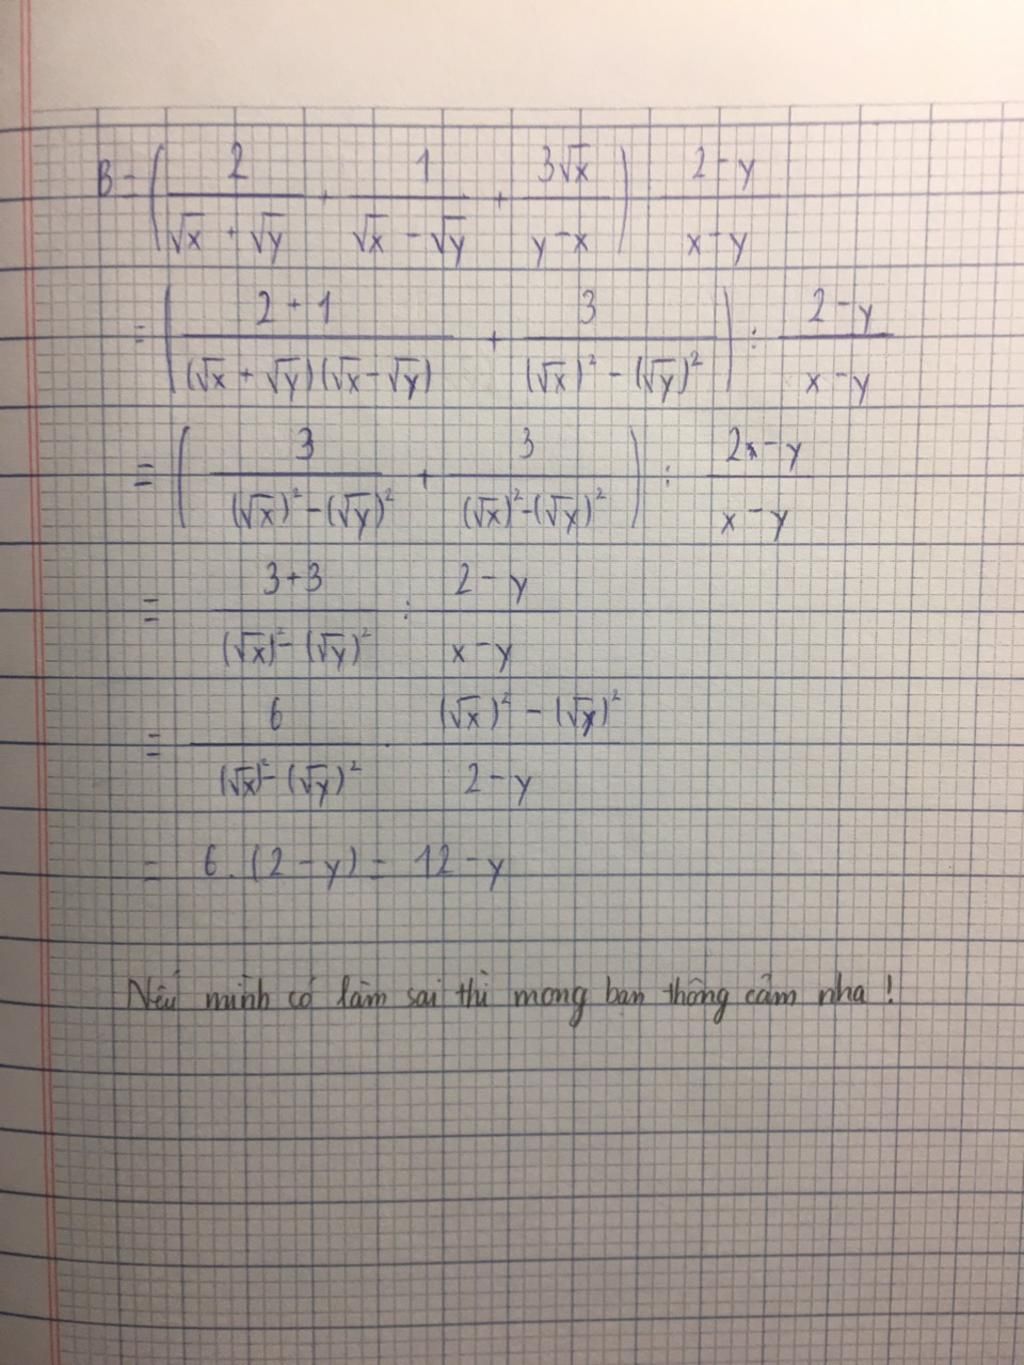 B = ( 2/(√x + √y) + 1/(√x - √y) + 3√x/(y - x) ) (2 - y)/(x - y)
= ( (2 + 1)/((√x + √y)(√x - √y)) + 3/((√x)² - (√y)²) ) : (2 - y)/(x - y)
= ( 3/((√x)² - (√y)²) + 3/((√x)² - (√y)²) ) : (2x - y)/(x - y)
= (3 + 3)/((√x)² - (√y)²) : (2 - y)/(x - y)
= 6/((√x)² - (√y)²) . ((√x)² - (√y)²)/(2 - y)
= 6 . (2 - y) = 12 - y
Nếu mình có làm sai thì mong bạn thông cảm nha !